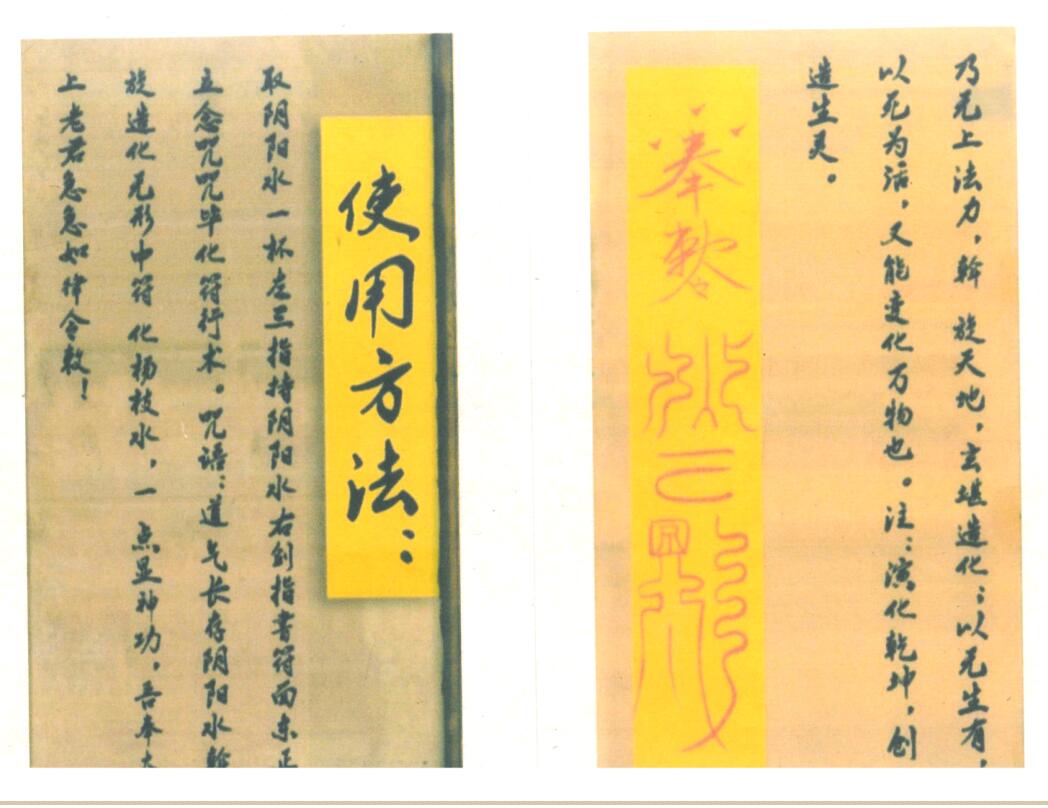 乃无上法力，斡 旋天地，玄堪造化；以无生有，
以死为活，又能变化万物也。注：演化乾坤，创
造生灵。
奉敕令
使用方法：
取阴阳水一杯左三指持阴阳水右剑指书符面东正
立念咒咒毕化符行术。咒语：道气长存阴阳水斡
旋造化无形中符化杨枝水，一点显神功。吾奉太
上老君急急如律令敕！